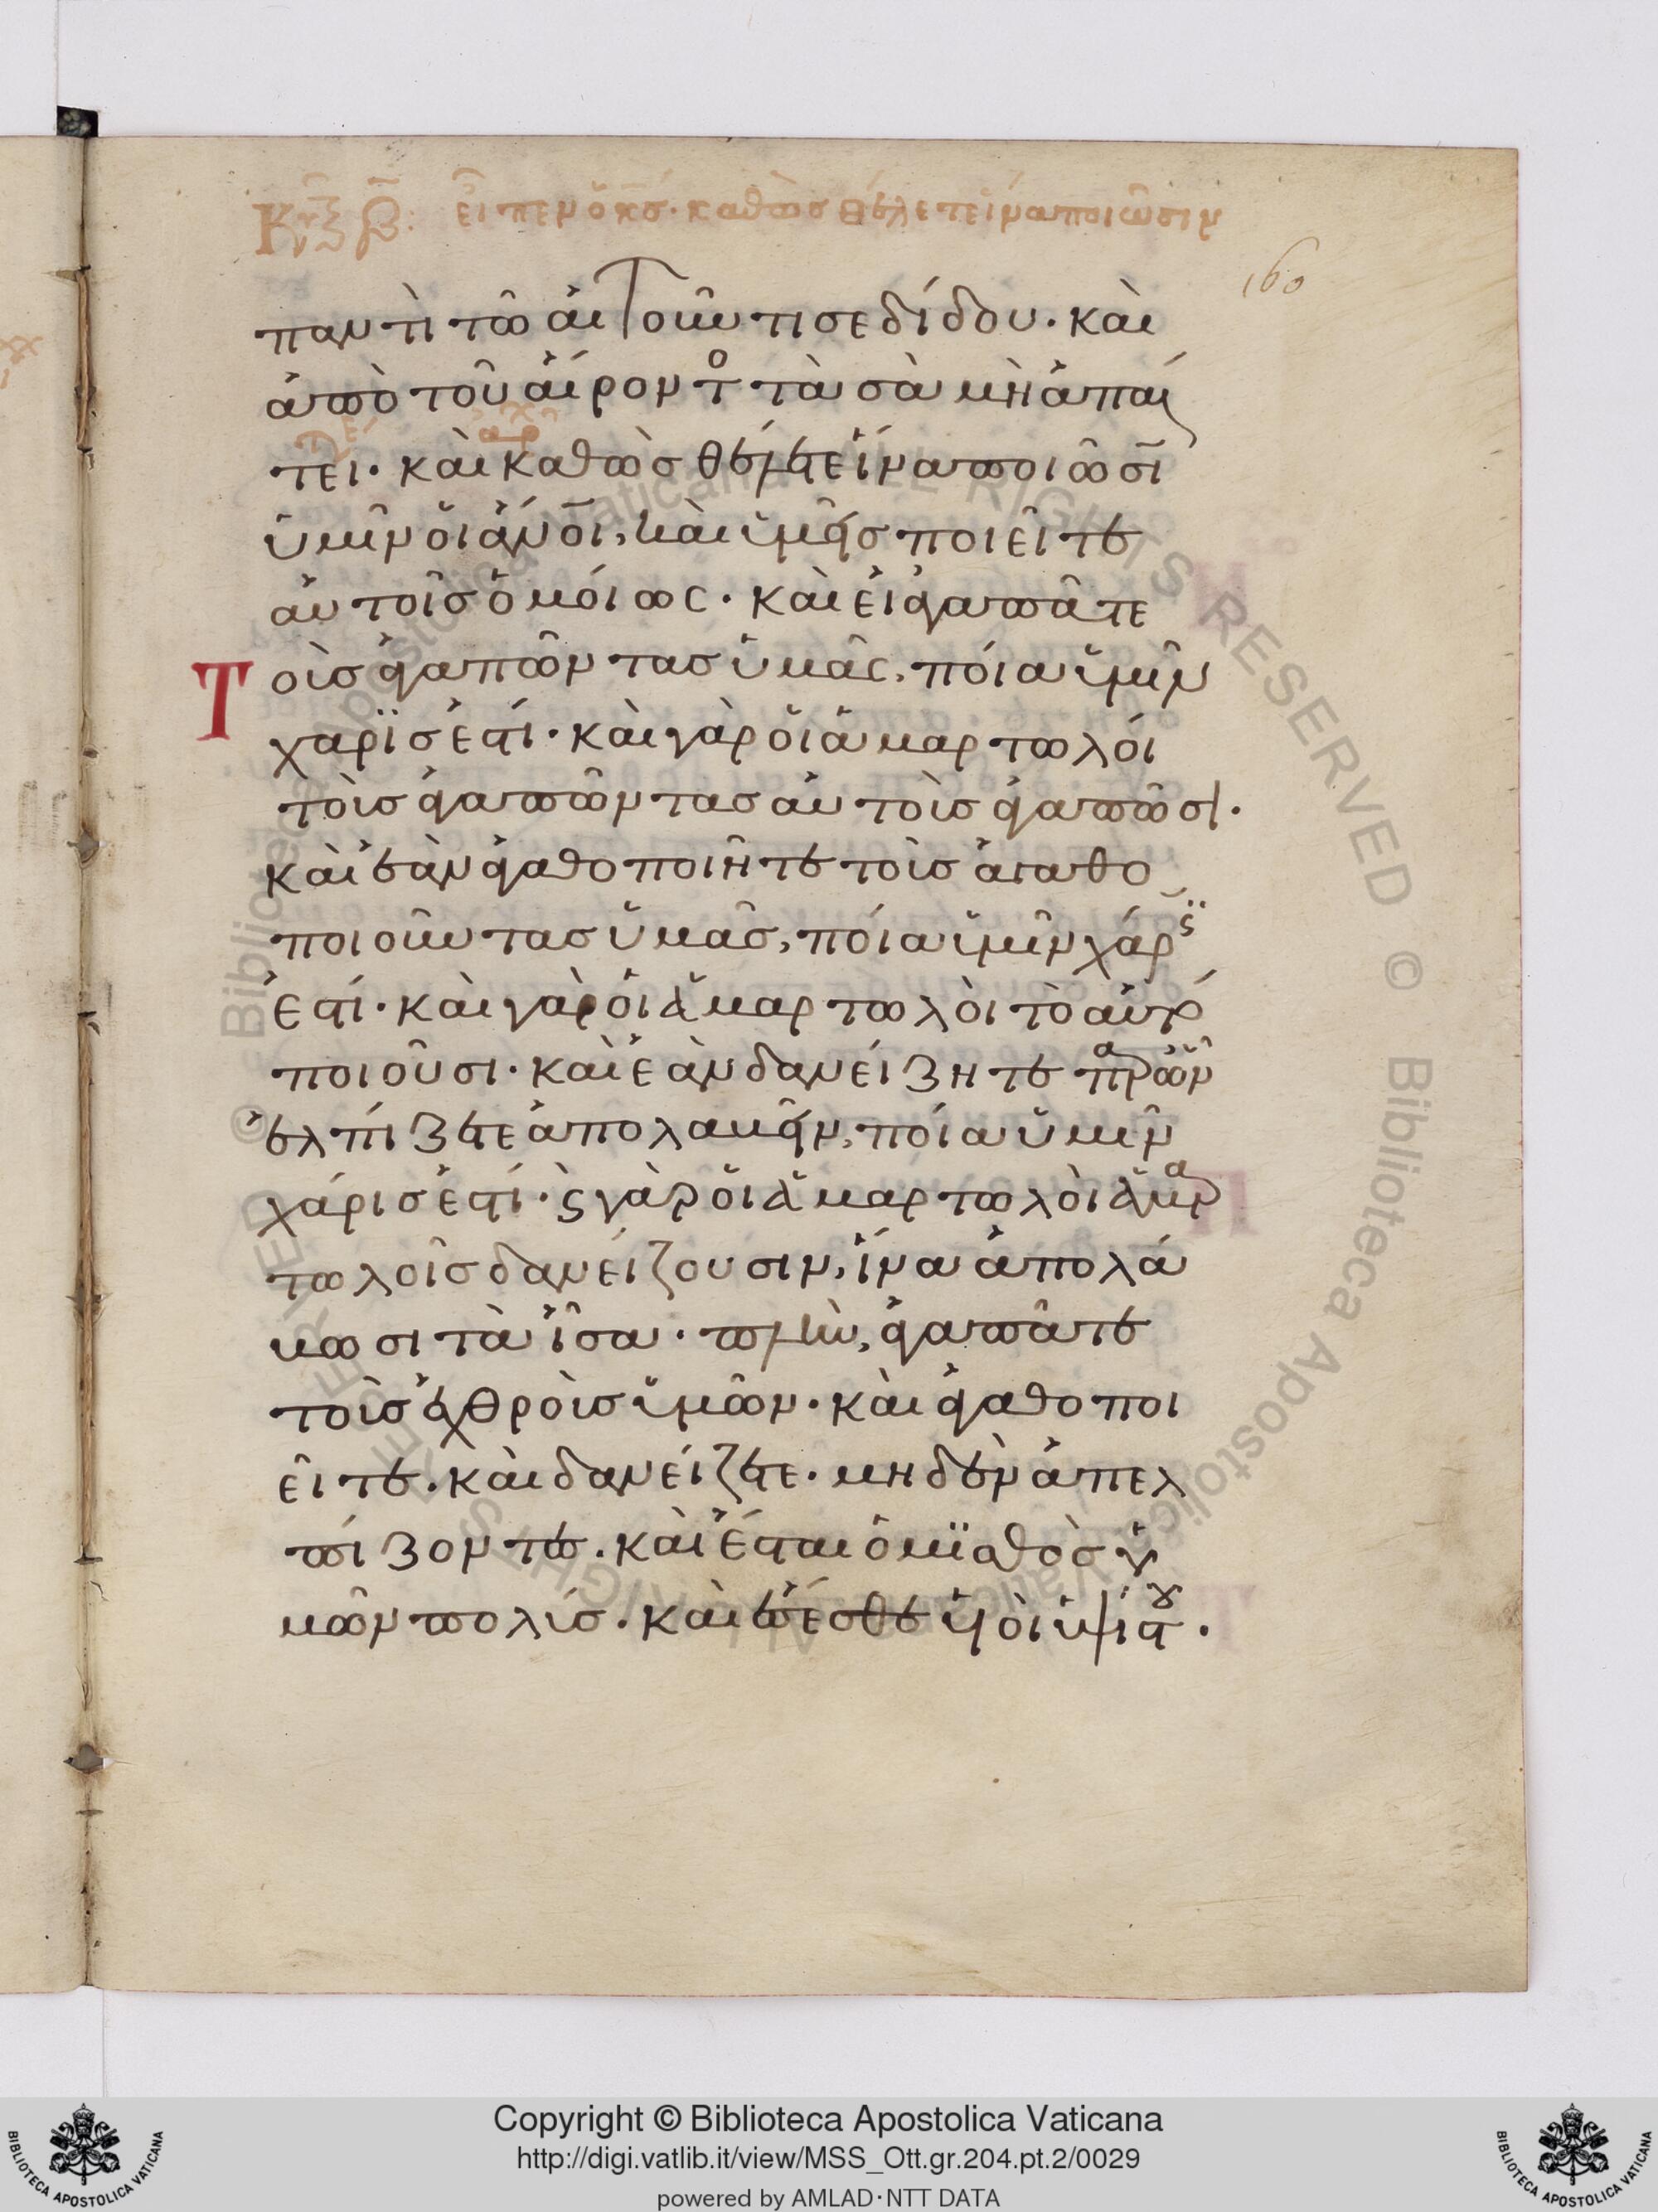 Κυ ξ Β: εἶπεν ὁ κς. καθὼς θέλετε ἵνα ποιῶσιν
160
παντὶ τῶ αἰτοῦντι σε δίδου. καὶ
ἀπὸ τοῦ αἴροντο τὰ σὰ μὴ ἀπαί
τει. καὶ καθὼσ θέλετε ἵνα ποιῶσῑ
ὑμῖν ὁι ἄνοι, καὶ ὑμεῖσ ποιεῖτε
αὐτοῖσ ὁμόιως. καὶ εἰ ἀγαπᾶτε
Τοὺσ ἀγαπῶντασ ὑμᾶς, πόια ὑμῖν
χαρϊσ ἐστί. καὶ γὰρ ὁι ἁμαρτωλόι
τοὺσ ἀγαπῶντασ αὐτοὺσ ἀγαπῶσι.
καὶ ἐὰν ἀγαθοποιῆτε τοὺσ ἀγαθο
ποιοῦντασ ὑμᾶσ, πόια ὑμῖν χάρϊς
ἐστί. καὶ γὰρ ὁι ἁμαρτωλὸι τὸ αὐτὸ
ποιοῦσι. καὶ ἐὰν δανείζητε παρ ὧν
ἐλπίζετε ἀπολαμβεῖν, πόια ὑμῖν
χάρισ ἐστί. ϛ γὰρ ὁι ἁμαρτωλὸι ἁμαρ
τωλοῖσ δανείζουσιν, ἵνα ἀπολά
βωσι τὰ ἶσα. πλὴν, ἀγαπᾶτε
τοὺσ ἐχθροὺσ ὑμῶν. καὶ ἀγαθοποι
εῖτε. καὶ δανείζετε. μηδὲν ἀπελ
πίζοντεσ. καὶ ἔσται ὁ μϊσθὸσ ὑ
μῶν πολύσ. καὶ ἔσεσθε ὑιὸι ὑψίστου.
Copyright © Biblioteca Apostolica Vaticana
http://digi.vatlib.it/view/MSS_Ott.gr.204.pt.2/0029
powered by AMLAD·NTT DATA
BIBLIOTECA APOSTOLICA VATICANA
BIBLIOTECA APOSTOLICA VATICANA